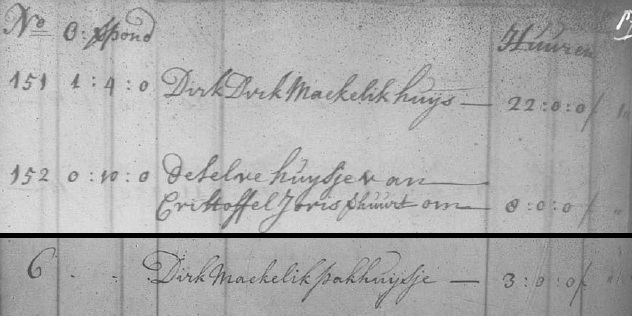 No O: Pond Huuren
151 1:4:0 Dirk Dirk Maekelik huys — 22:0:0/
152 0:10:0 deselve huysje van
Cristoffel Joris ghuurt om — 8:0:0/
6 - - Dirk Maekelik pakhuysje — 3:0:0/